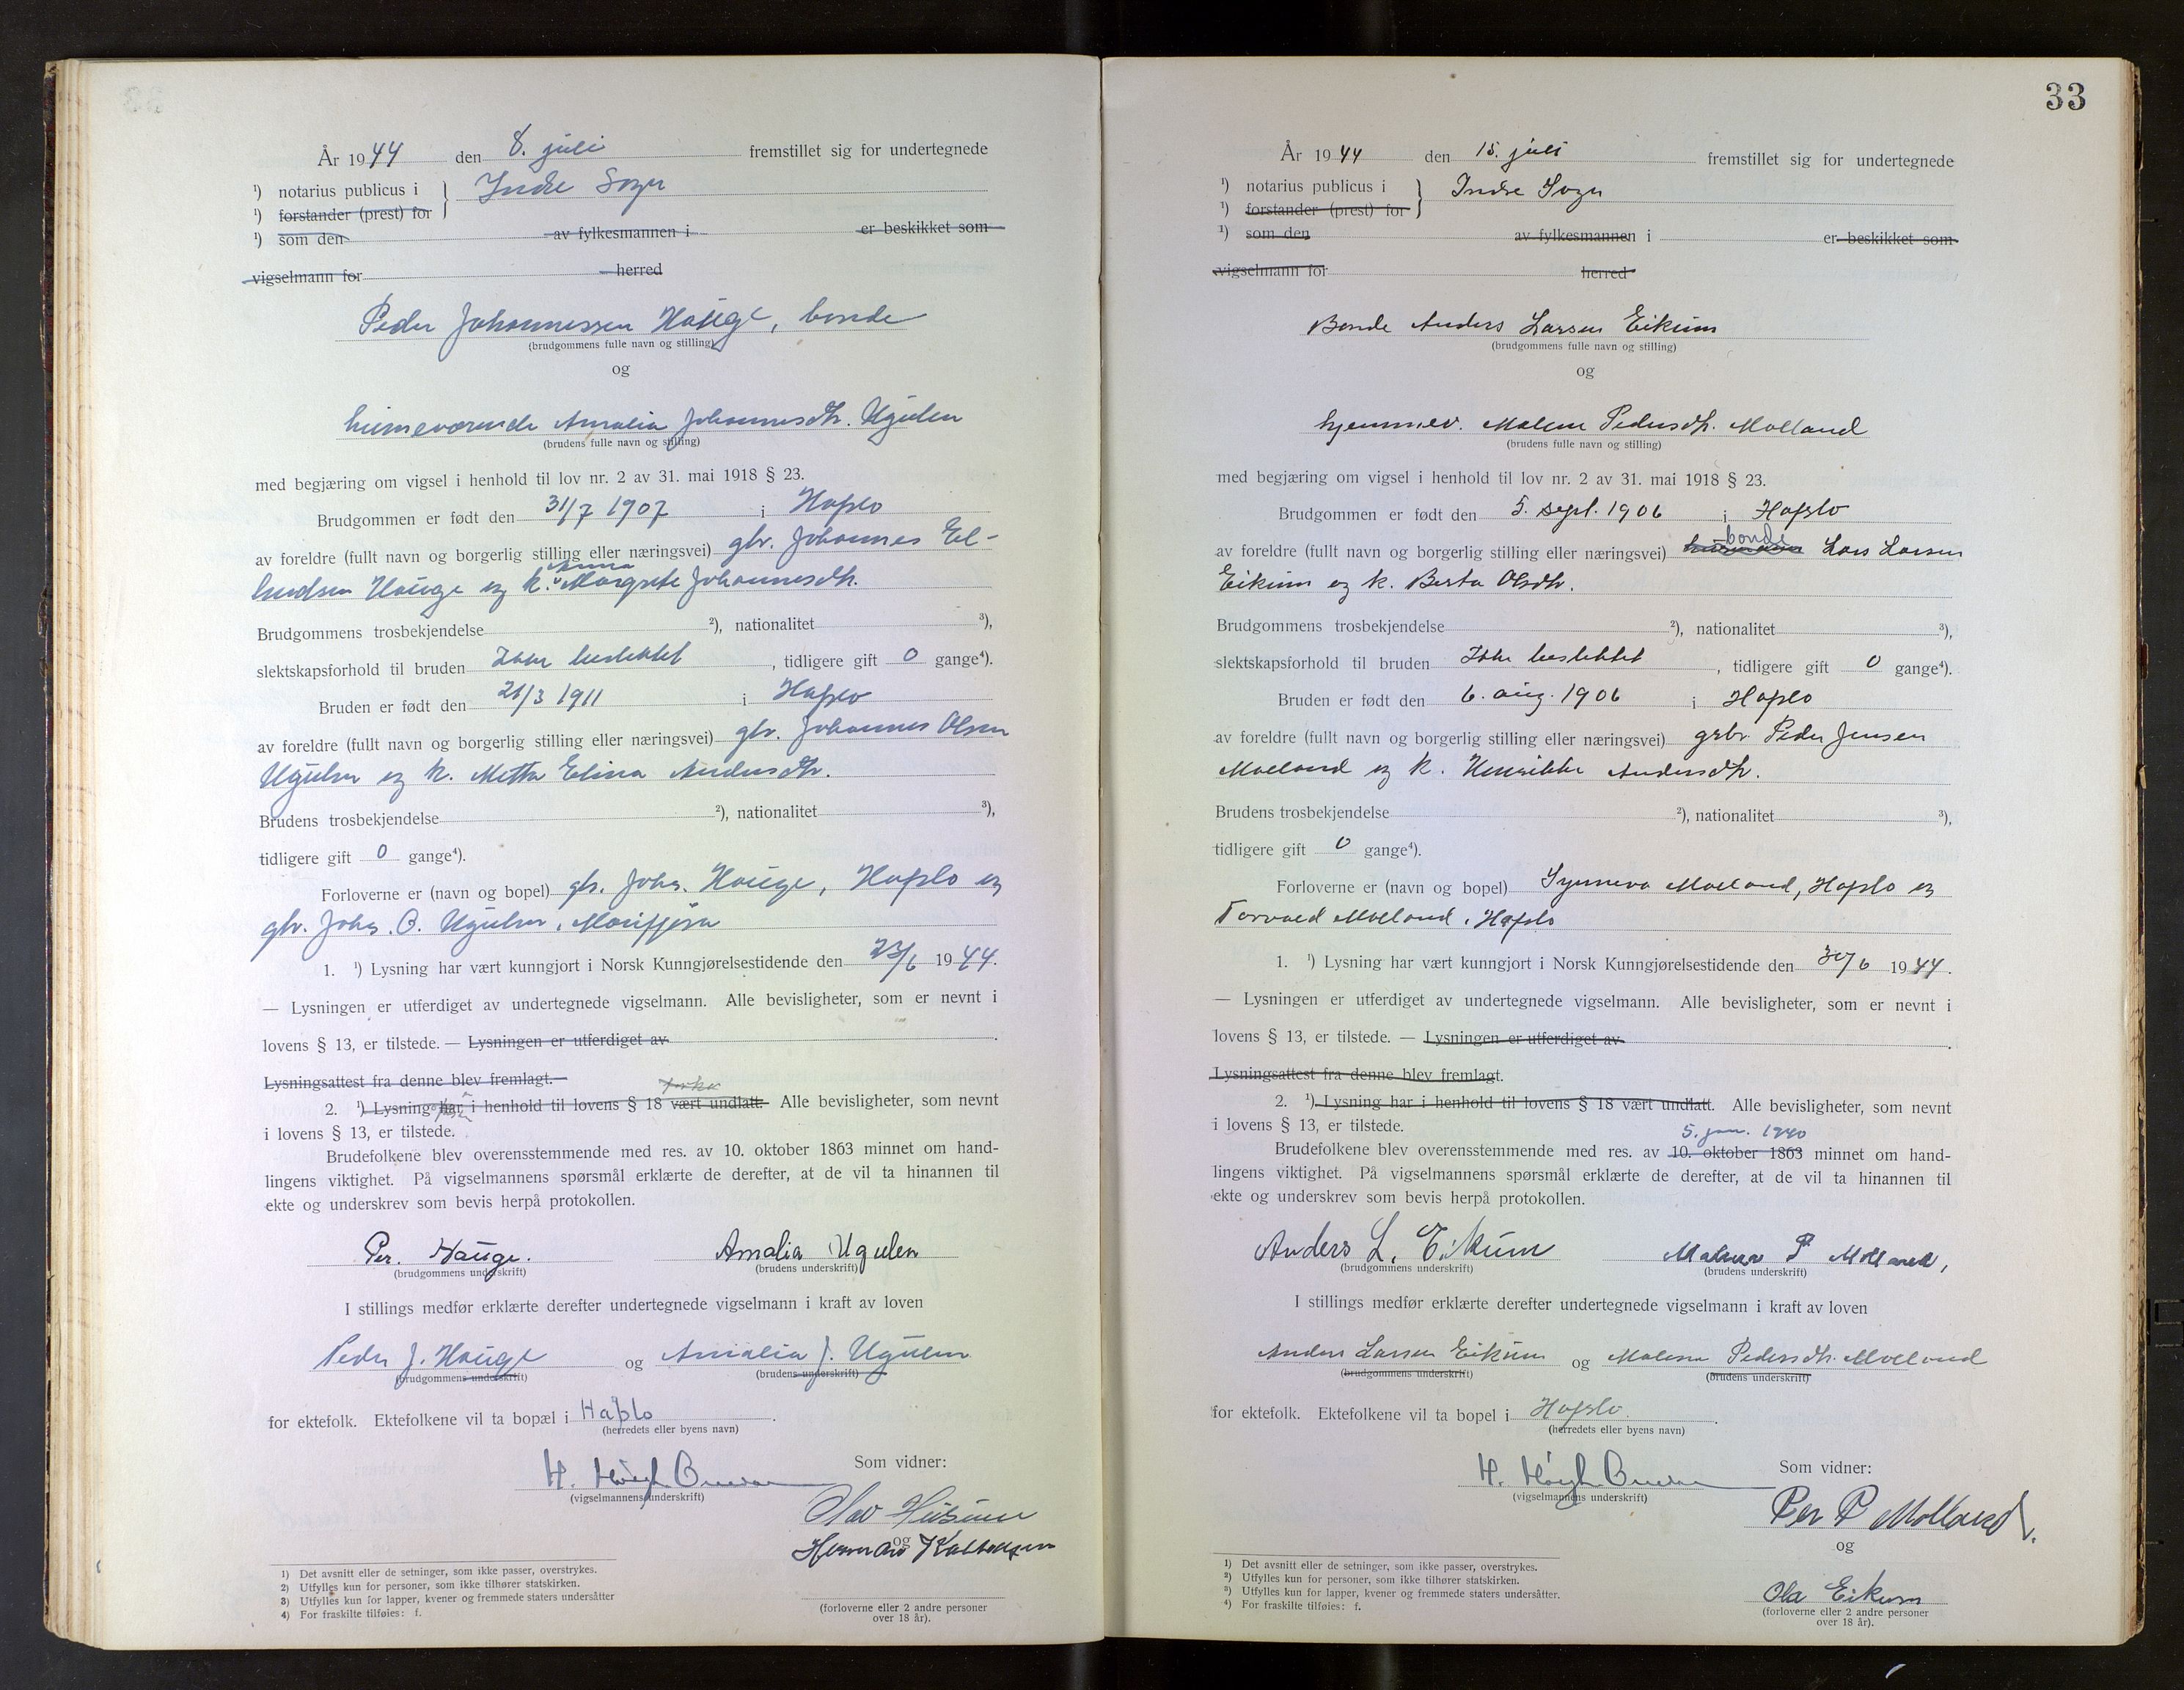 År 1944 den 8. juli fremstillet sig for undertegnede
¹) notarius publicus i } Indre Sogn
¹) forstander (prest) for
¹) som den av fylkesmannen i er beskikket som
vigselmann for herred
Peder Johannessen Hauge, bonde
(brudgommens fulle navn og stilling)
og
heimeværende Amalia Johannesdtr. Ugulen
(brudens fulle navn og stilling)
med begjæring om vigsel i henhold til lov nr. 2 av 31. mai 1918 § 23.
Brudgommen er født den 31/7 1907 i Hafslo
av foreldre (fullt navn og borgerlig stilling eller næringsvei) gbr. Johannes El-
lendsen Hauge og k. Anna Margrete Johannesdtr.
Brudgommens trosbekjendelse ²), nationalitet ³),
slektskapsforhold til bruden Ikke beslektet, tidligere gift 0 gange⁴).
Bruden er født den 21/3 1911 i Hafslo
av foreldre (fullt navn og borgerlig stilling eller næringsvei) gbr. Johannes Olsen
Ugulen og k. Metta Elina Andersdtr.
Brudens trosbekjendelse ²), nationalitet ³),
tidligere gift 0 gange⁴).
Forloverne er (navn og bopel) gbr. Johs. Hauge, Hafslo og
gbr. Johs. O. Ugulen, Marifjøra
1. ¹) Lysning har vært kunngjort i Norsk Kunngjørelsestidende den 23/6 1944.
— Lysningen er utferdiget av undertegnede vigselmann. Alle bevisligheter, som er nevnt i
lovens § 13, er tilstede. — Lysningen er utferdiget av .
Lysningsattest fra denne blev fremlagt.
2. ¹) Lysning har i henhold til lovens § 18 vært undlatt. Alle bevisligheter, som nevnt
i lovens § 13, er tilstede.
Brudefolkene blev overensstemmende med res. av 10. oktober 1863 minnet om hand-
lingens viktighet. På vigselmannens spørsmål erklærte de derefter, at de vil ta hinannen til
ekte og underskrev som bevis herpå protokollen.
Per. Hauge. Amalia Ugulen
(brudgommens underskrift) (brudens underskrift)
I stillings medfør erklærte derefter undertegnede vigselmann i kraft av loven
Peder J. Hauge og Amalia J. Ugulen
(brudgommens underskrift) (brudens underskrift)
for ektefolk. Ektefolkene vil ta bopæl i Hafslo .
(herredets eller byens navn)
H. Høygh
(vigselmannens underskrift)
Som vidner:
Olav Husum
og
Herman
(forloverne eller 2 andre personer
over 18 år).
1) Det avsnitt eller de setninger, som ikke passer, overstrykes.
2) Utfylles kun for personer, som ikke tilhører statskirken.
3) Utfylles kun for lapper, kvener og fremmede staters undersåtter
4) For fraskilte tilføies: f.
33
År 1944 den 15. juli fremstillet sig for undertegnede
¹) notarius publicus i } Indre Sogn
¹) forstander (prest) for
¹) som den av fylkesmannen i er beskikket som
vigselmann for herred
Bonde Anders Larsen Eikum
(brudgommens fulle navn og stilling)
og
hjemmev. Malene Pedersdtr. Molland
(brudens fulle navn og stilling)
med begjæring om vigsel i henhold til lov nr. 2 av 31. mai 1918 § 23.
Brudgommen er født den 5. sept. 1906 i Hafslo
bonde
av foreldre (fullt navn og borgerlig stilling eller næringsvei) husmann Lars Larsen
Eikum og k. Berta Olsdtr.
Brudgommens trosbekjendelse ²), nationalitet ³),
slektskapsforhold til bruden Ikke beslektet, tidligere gift 0 gange⁴).
Bruden er født den 6. aug. 1906 i Hafslo
av foreldre (fullt navn og borgerlig stilling eller næringsvei) grbr. Peder Jensen
Molland og k. Henrikke Andersdtr.
Brudens trosbekjendelse ²), nationalitet ³),
tidligere gift 0 gange⁴).
Forloverne er (navn og bopel) Synneva Molland, Hafslo og
Torvald Molland, Hafslo
1. ¹) Lysning har vært kunngjort i Norsk Kunngjørelsestidende den 30/6 1944.
— Lysningen er utferdiget av undertegnede vigselmann. Alle bevisligheter, som er nevnt i
lovens § 13, er tilstede. — Lysningen er utferdiget av .
Lysningsattest fra denne blev fremlagt.
2. ¹) Lysning har i henhold til lovens § 18 vært undlatt. Alle bevisligheter, som nevnt
i lovens § 13, er tilstede.
5. jan. 1940
Brudefolkene blev overensstemmende med res. av 10. oktober 1863 minnet om hand-
lingens viktighet. På vigselmannens spørsmål erklærte de derefter, at de vil ta hinannen til
ekte og underskrev som bevis herpå protokollen.
Anders L. Eikum Malene P Molland,
(brudgommens underskrift) (brudens underskrift)
I stillings medfør erklærte derefter undertegnede vigselmann i kraft av loven
Anders Larsen Eikum og Malene Pedersdtr. Molland
(brudgommens underskrift) (brudens underskrift)
for ektefolk. Ektefolkene vil ta bopel i Hafslo .
(herredets eller byens navn)
H. Høygh
(vigselmannens underskrift)
Som vidner:
Per P Molland.
og
Ola Eikum
(forloverne eller 2 andre personer
over 18 år).
1) Det avsnitt eller de setninger, som ikke passer, overstrykes.
2) Utfylles kun for personer, som ikke tilhører statskirken.
3) Utfylles kun for lapper, kvener og fremmede staters undersåtter.
4) For fraskilte tilføies: f.